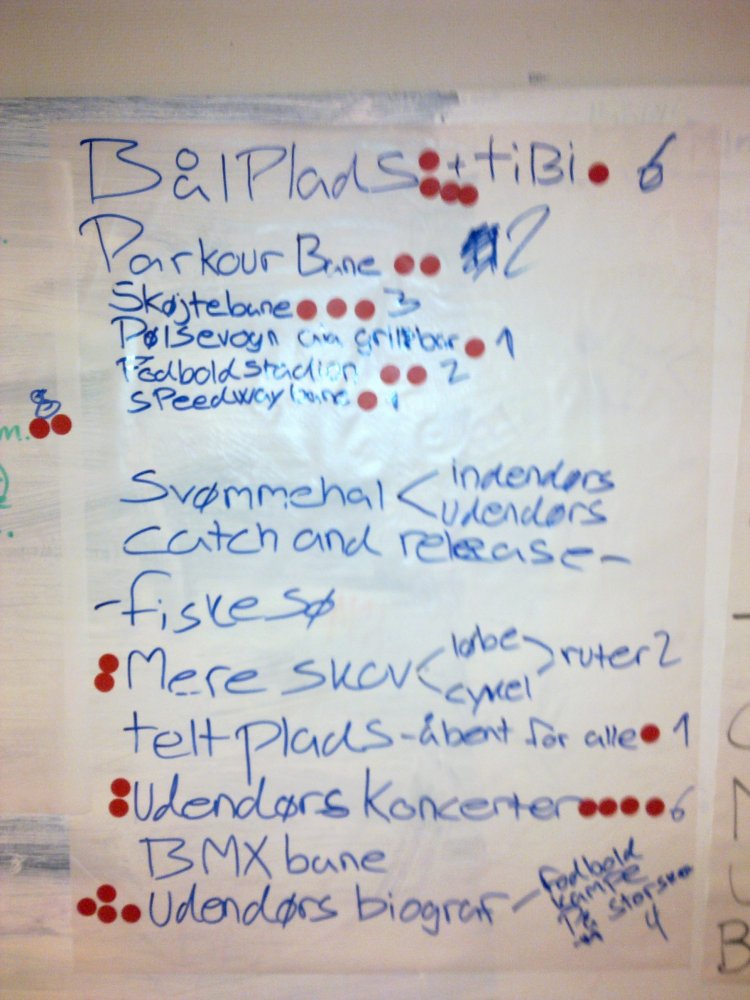 BålPlads + tiBi 6
Parkour Bane 2
Skøjtebane 3
Pølsevogn grillbar 1
Fodboldstadion 2
speedwaybane 1
8
m.
Svømmehal < indendørs
udendørs
catch and release -
- fiskesø
Mere skov < løbe > ruter 2
cykel
telt plads - åbent for alle 1
Udendørs koncerter 6
BMX bane
Udendørs biograf - fodbold
kampe
På storskæ
4